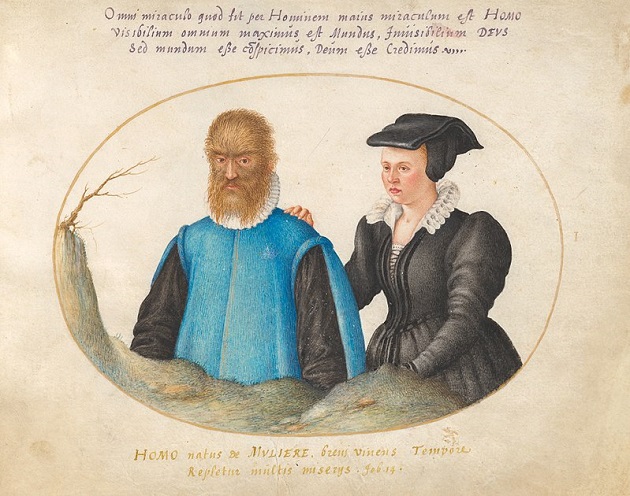 Omni miraculo quod fit per Hominem maius miraculum est HOMO
Visibilium omnium maximus est Mundus, Inuisibilium DEVS
Sed mundum eße cõspicimus, Deum eße Credimus
HOMO natus de MVLIERE, breui viuens Tempore
Repletur multis miserijs. Job. 14.